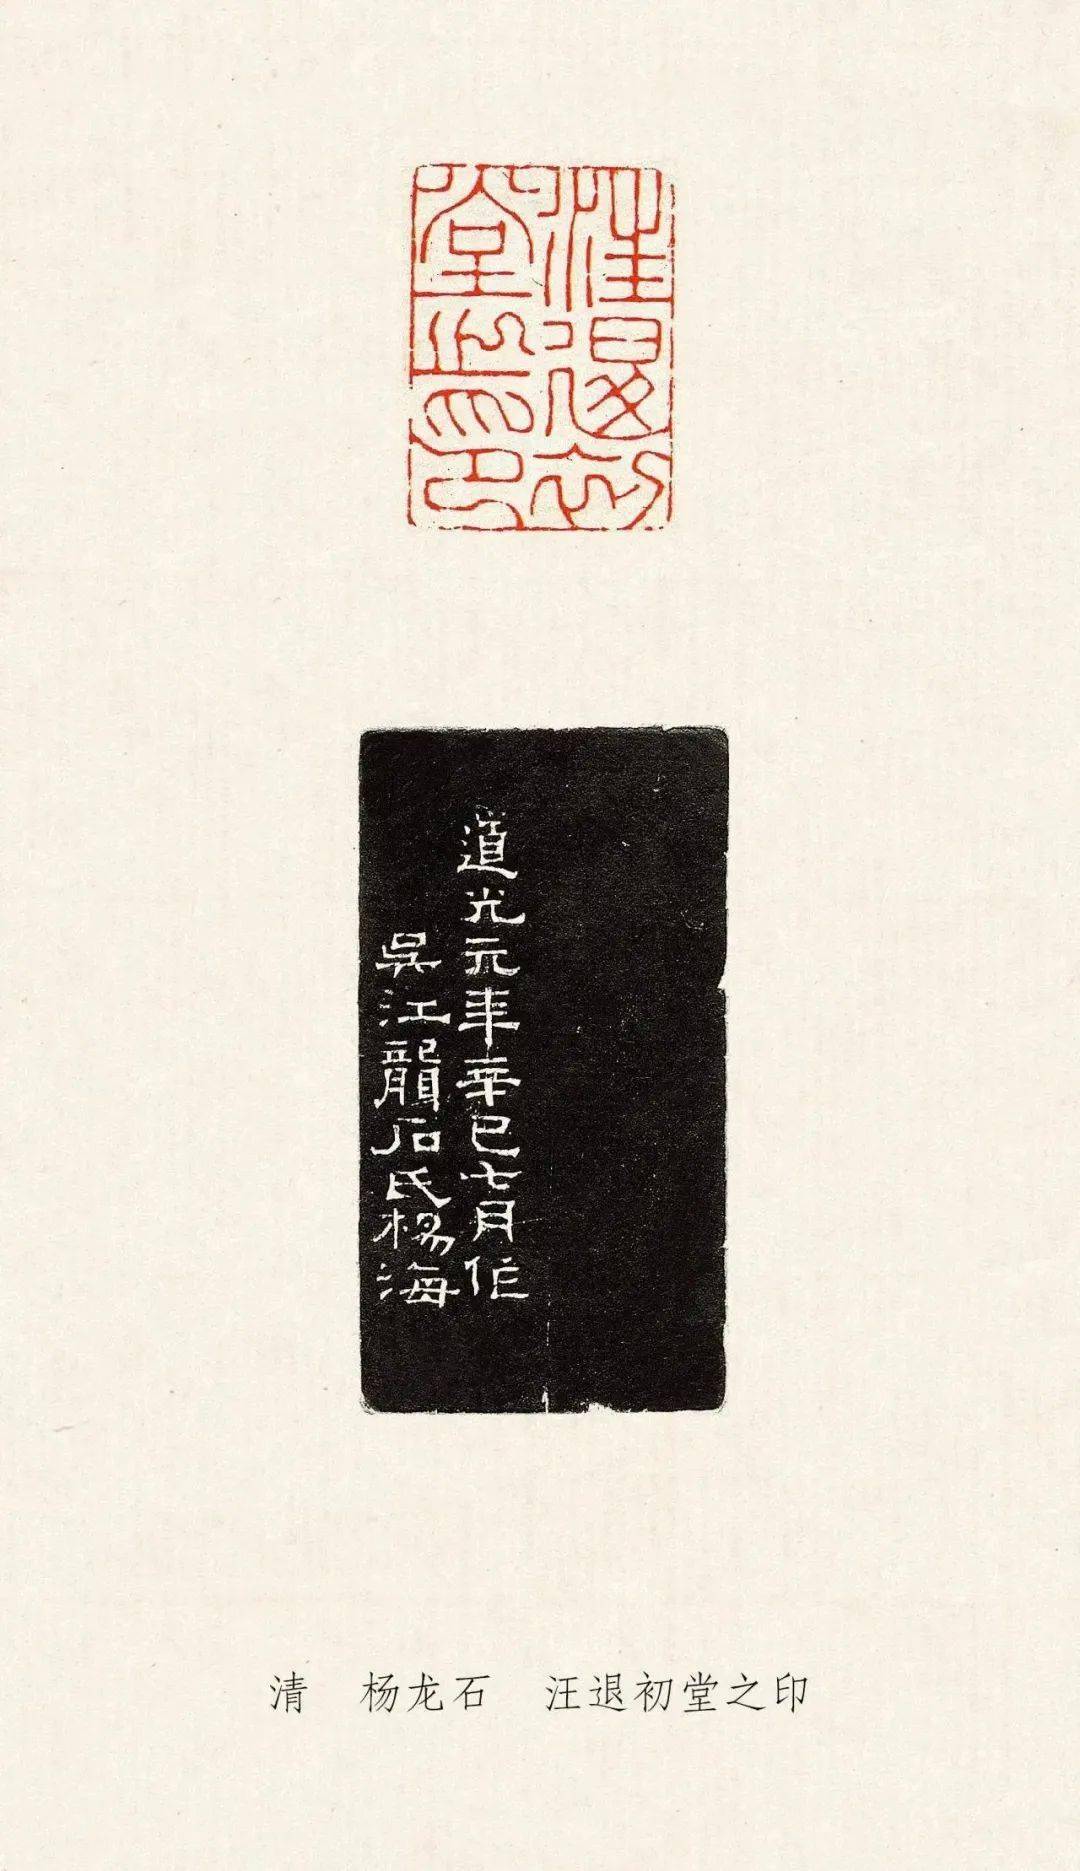 汪退初
堂之印
道光元年辛巳七月作
吳江龍石氏楊海
清　杨龙石　汪退初堂之印